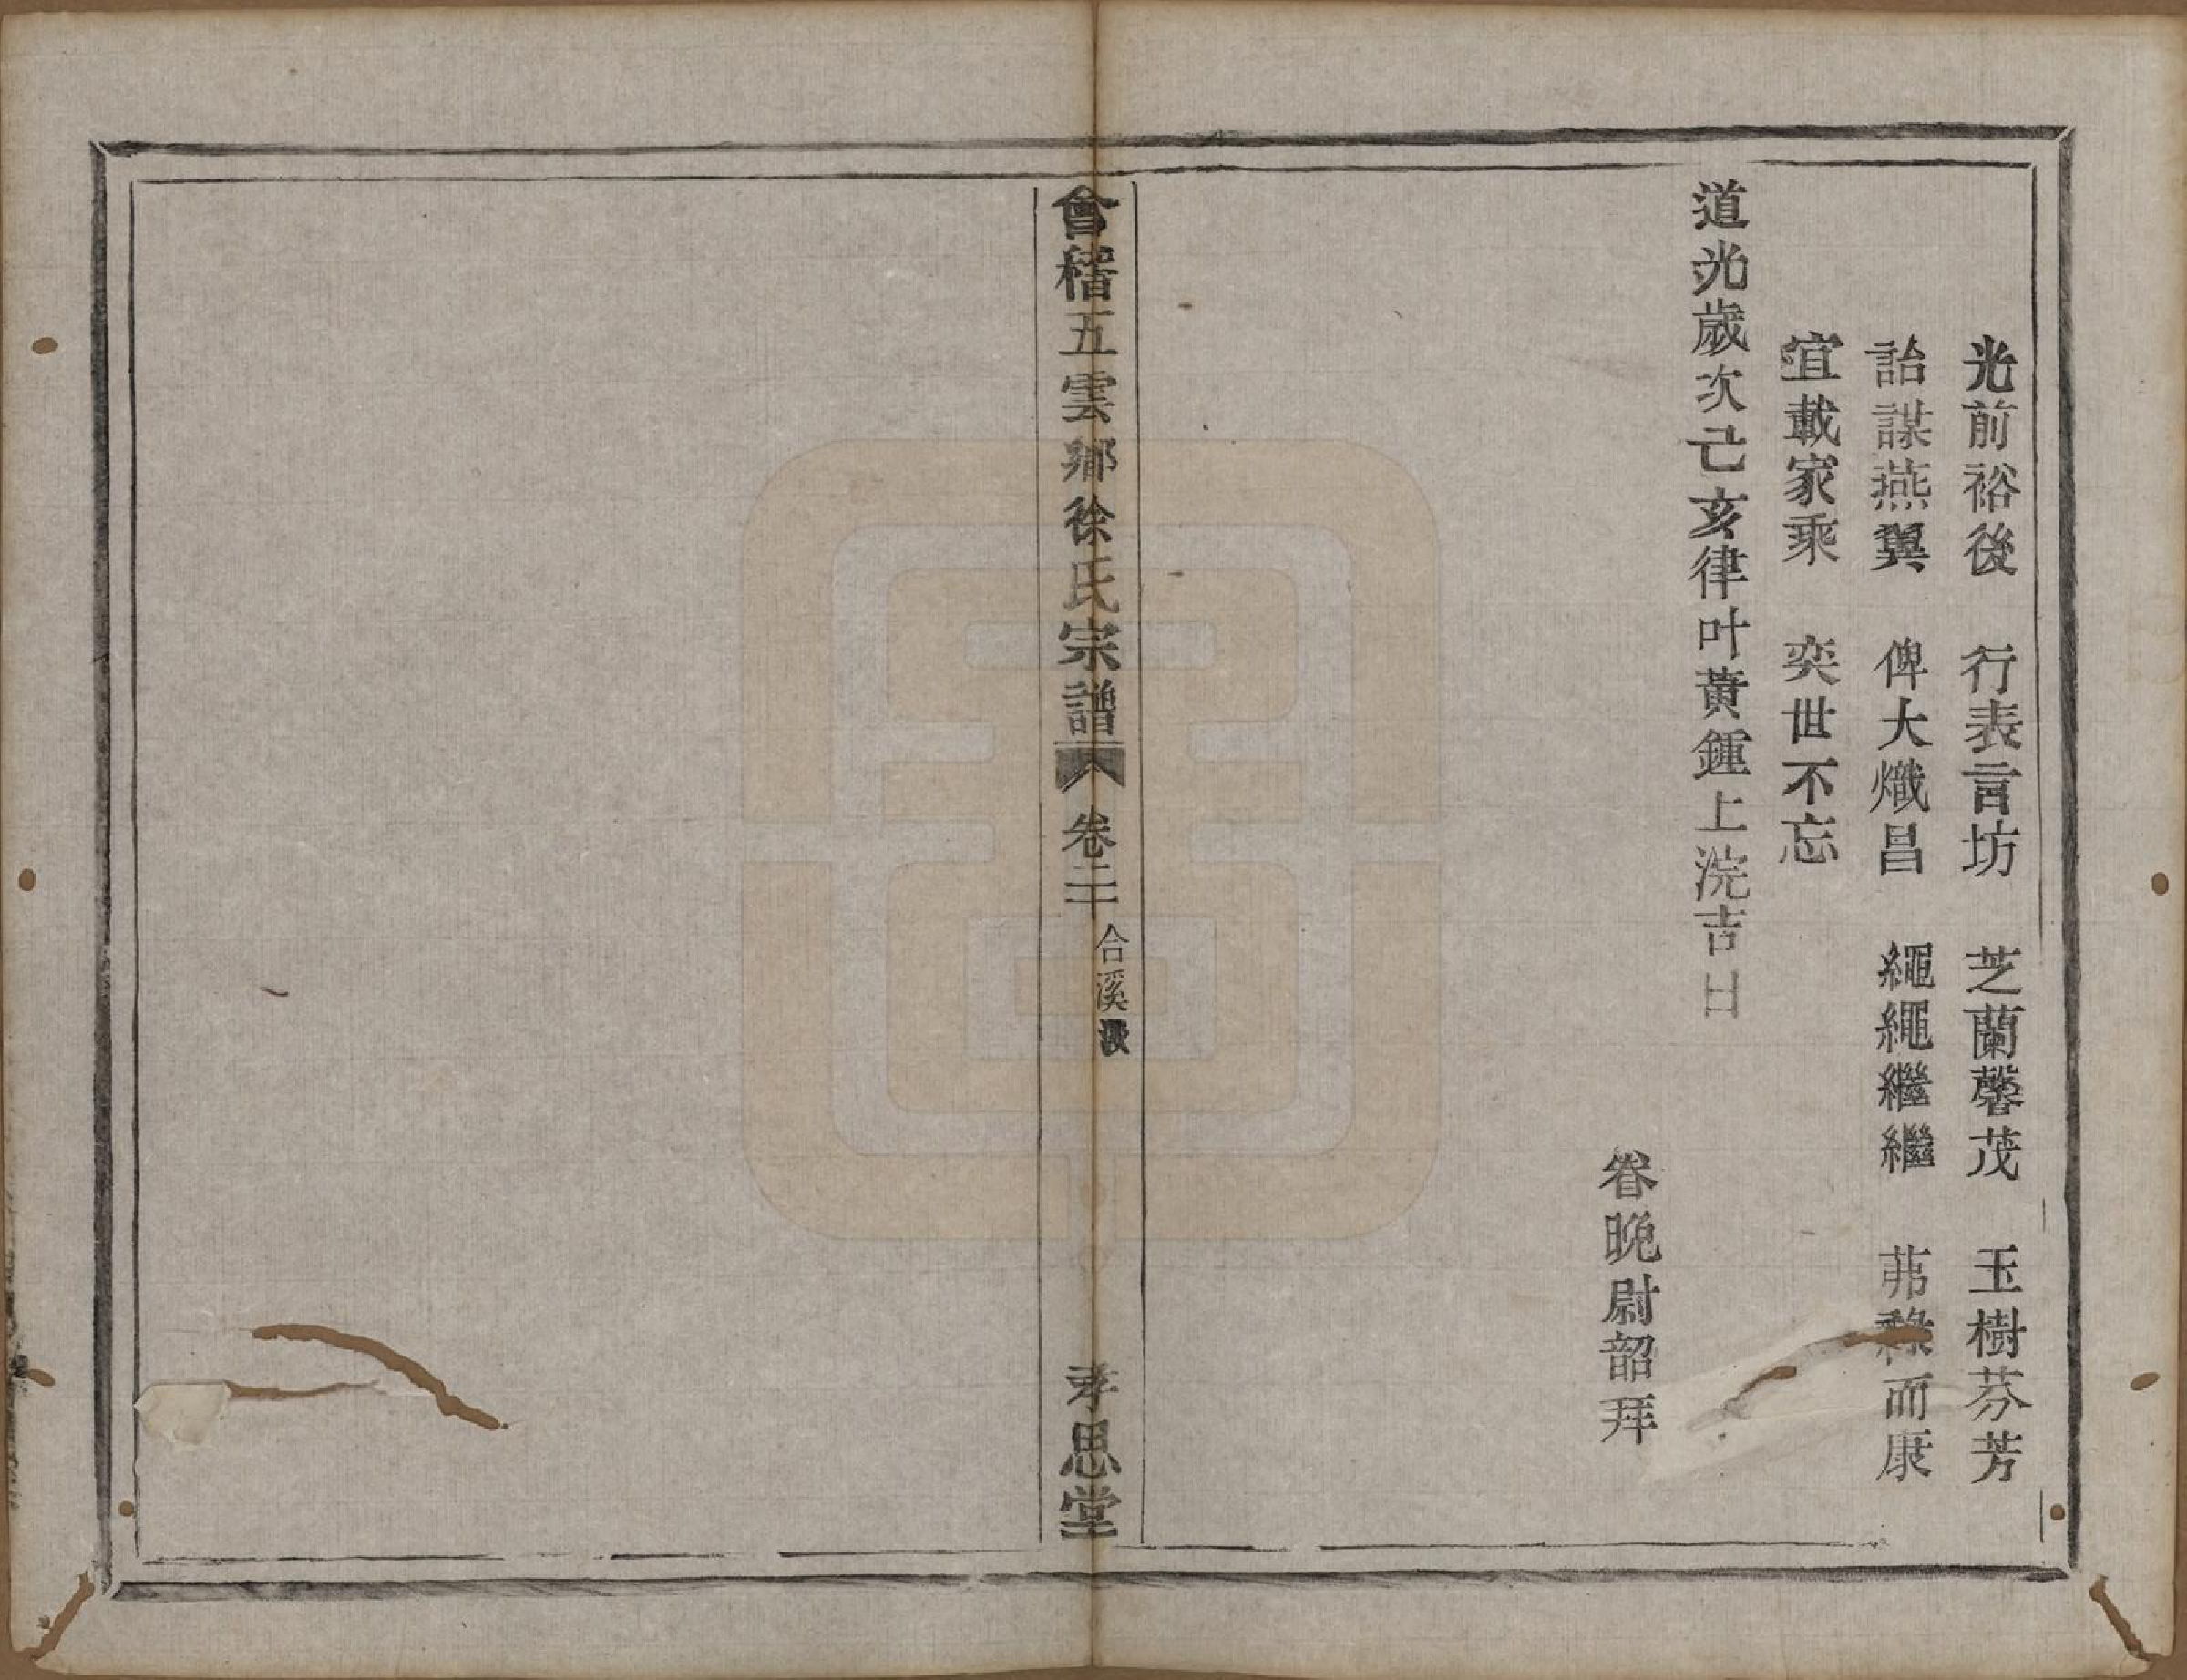 光前裕後　行表言坊　芝蘭馨茂　玉樹芬芳
詒謀燕翼　俾大熾昌　繩繩繼繼　茀祿而康
宜載家乘　奕世不忘
道光歲次己亥律叶黃鍾上浣吉日
眷晚尉韶拜
會稽五雲鄉徐氏宗譜　卷二十　合溪　孝思堂